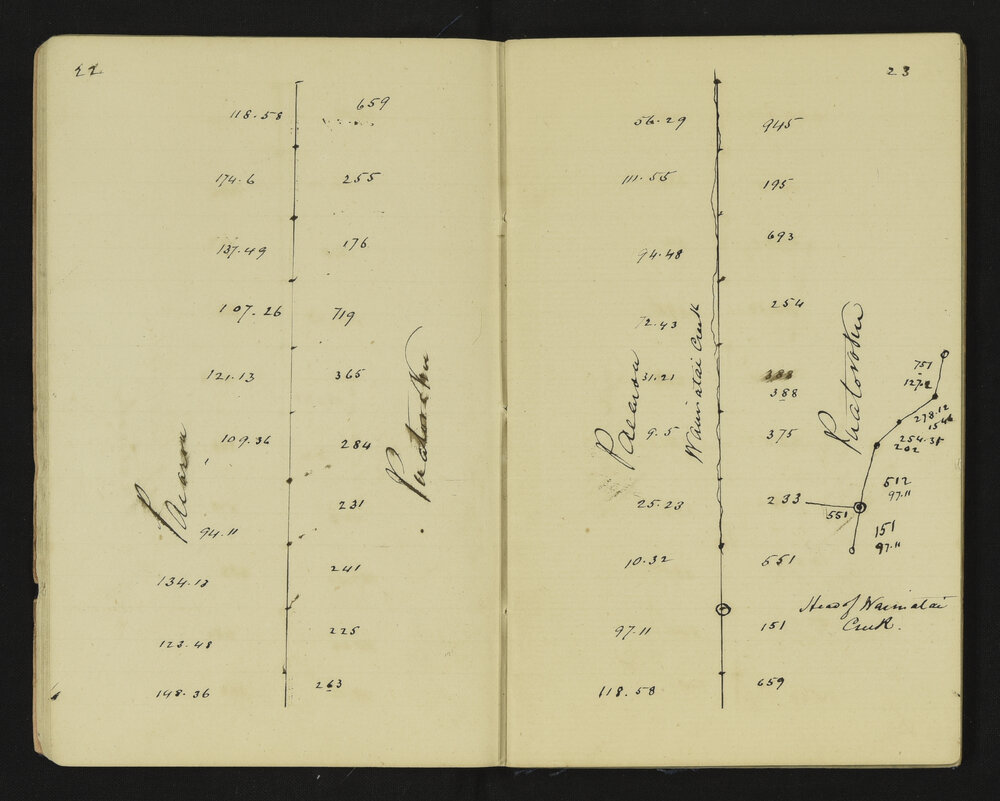 22
118.58 659
174.6 255
137.49 176
107.26 719
121.13 365
109.36 284
231
94.11
241
134.12
225
123.48
148.36 263
23
56.29 945
111.55 195
693
94.48
254
72.43
31.21 388
388
9.5 375
25.23 233
10.32 551
97.11 151
118.58 659
Waimatai Creek
751
127.2
278.12
254.35
202
512
97.11
551
151
97.11
Head of Waimatai
Creek.